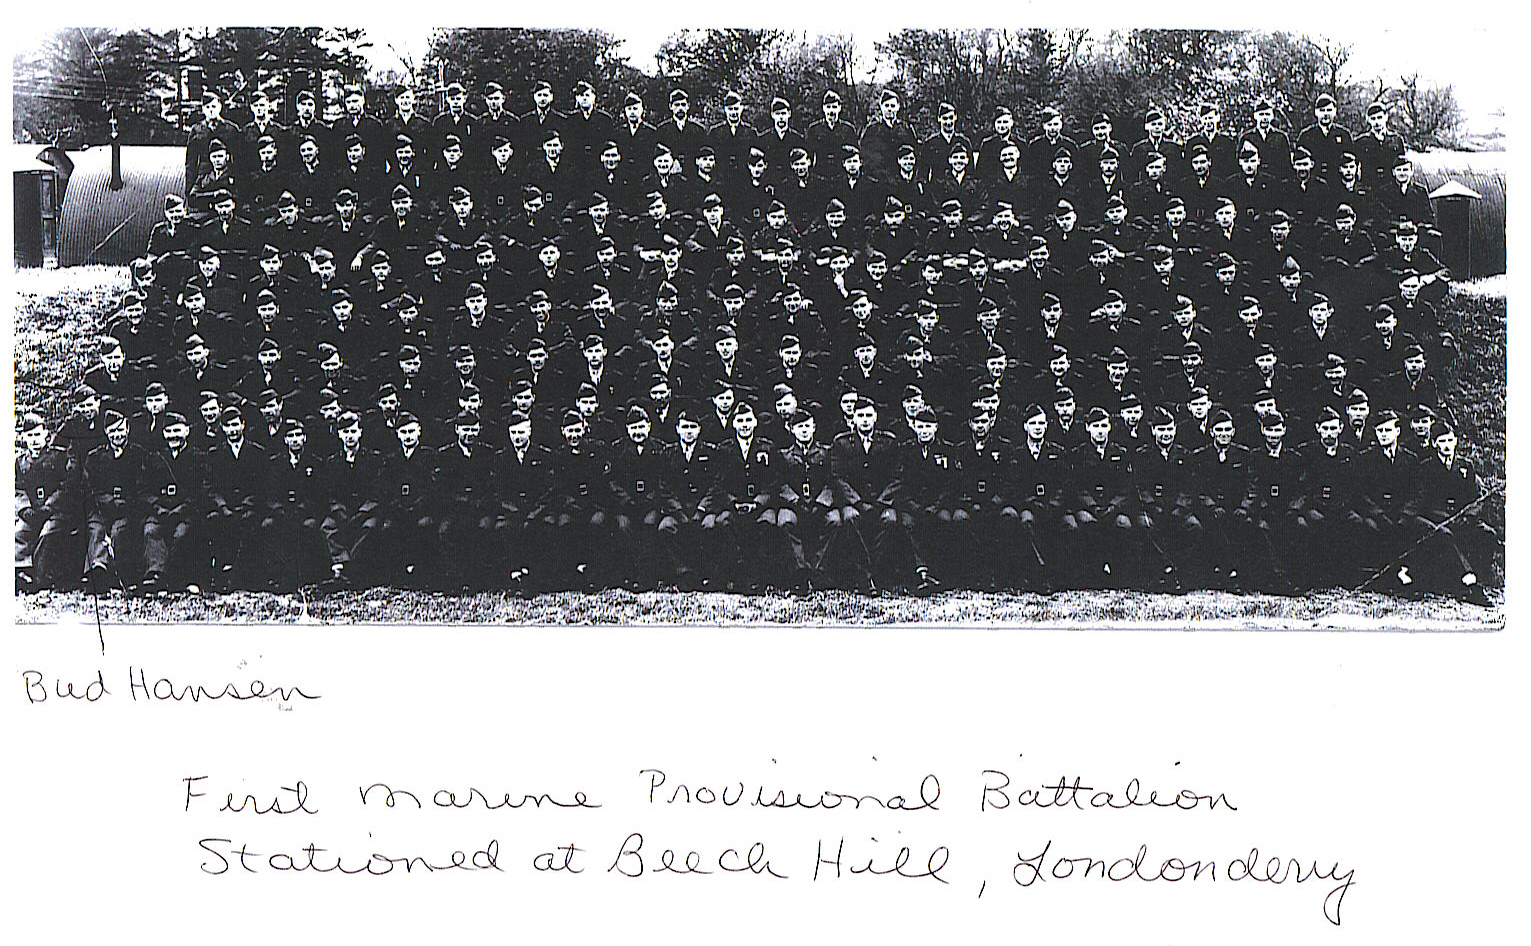 Bud Hansen
First Marine Provisional Battalion
Stationed at Beech Hill, Londonderry